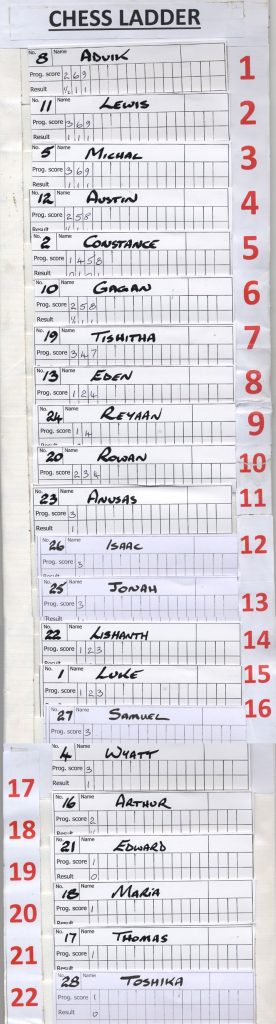 CHESS LADDER
No. 8 Name ADVIK 1
Prog. score 2 6 9
Result ½ 1 1
No. 11 Name LEWIS 2
Prog. score 3 6 9
Result 1 1 1
No. 5 Name MICHAL 3
Prog. score 3 6 9
Result 1 1 1
No. 12 Name AUSTIN 4
Prog. score 2 5 8
Result ½ 1 1
No. 2 Name CONSTANCE 5
Prog. score 1 4 5 8
No. 10 Name GAGAN 6
Prog. score 2 5 8
Result ½ 1 1
No. 19 Name TISHITHA 7
Prog. score 3 4 7
No. 13 Name EDEN 8
Prog. score 1 2 4
No. 24 Name REYAAN 9
Prog. score 1 4
No. 20 Name ROWAN 10
Prog. score 2 3 4
No. 23 Name ANUSAS 11
Prog. score 3
Result 1
No. 26 Name ISAAC 12
Prog. score 3
No. 25 Name JONAH
Prog. score 3 13
No. 22 Name LISHANTH 14
Prog. score 1 2 3
No. 1 Name LUKE 15
Prog. score 1 2 3
No. 27 Name SAMUEL 16
Prog. score 3
No. 4 Name WYATT
Prog. score 3
17 Result 1
No. 16 Name ARTHUR
18 Prog. score 2
No. 21 Name EDWARD
Prog. score 1
19 Result 0
No. 18 Name MARIA
20 Prog. score 1
No. 17 Name THOMAS
21 Prog. score 1
No. 28 Name TOSHIKA
22 Prog. score 1
Result 0